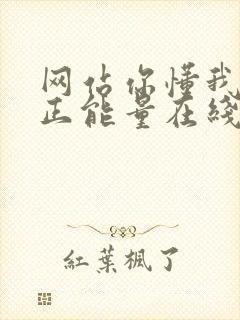 网站你懂我
正能量在线
红葉楓了